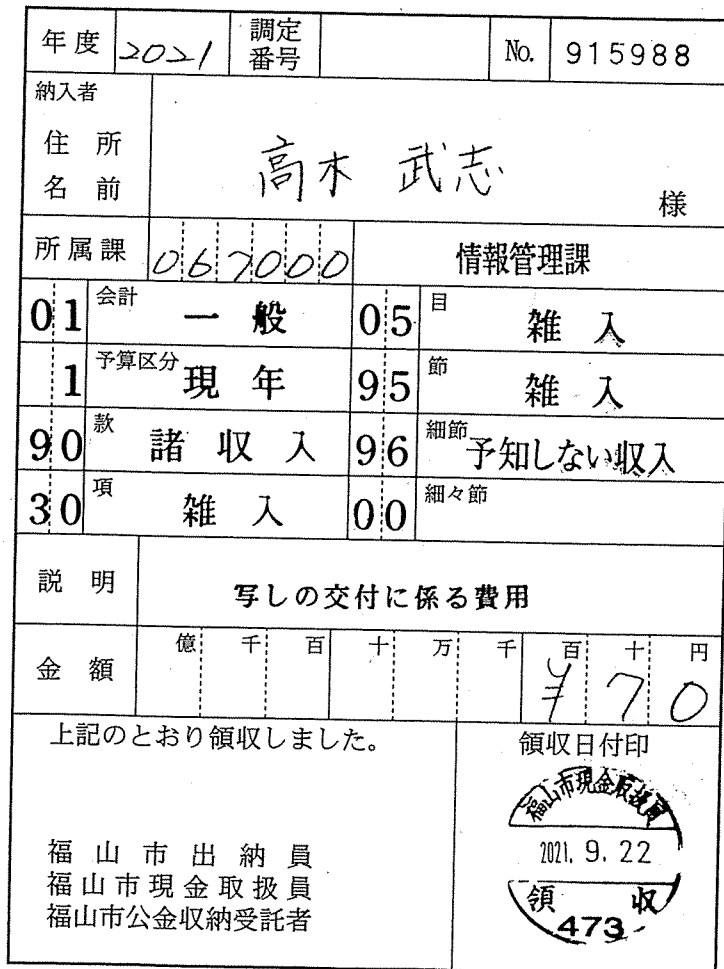 年度 2021 調定番号 No. 915988
納入者
住所
名前
高木 武志 様
所属課 067000 情報管理課
01 会計 一般 05 目 雑入
1 予算区分 現年 95 節 雑入
90 款 諸収入 96 細節 予知しない収入
30 項 雑入 00 細々節
説明 写しの交付に係る費用
金額 億 千 百 十 万 千 百 十 円
¥70
上記のとおり領収しました。
領収日付印
福山市出納員
福山市現金取扱員
福山市公金収納受託者
福山市現金取扱員
2021. 9. 22
領収
473